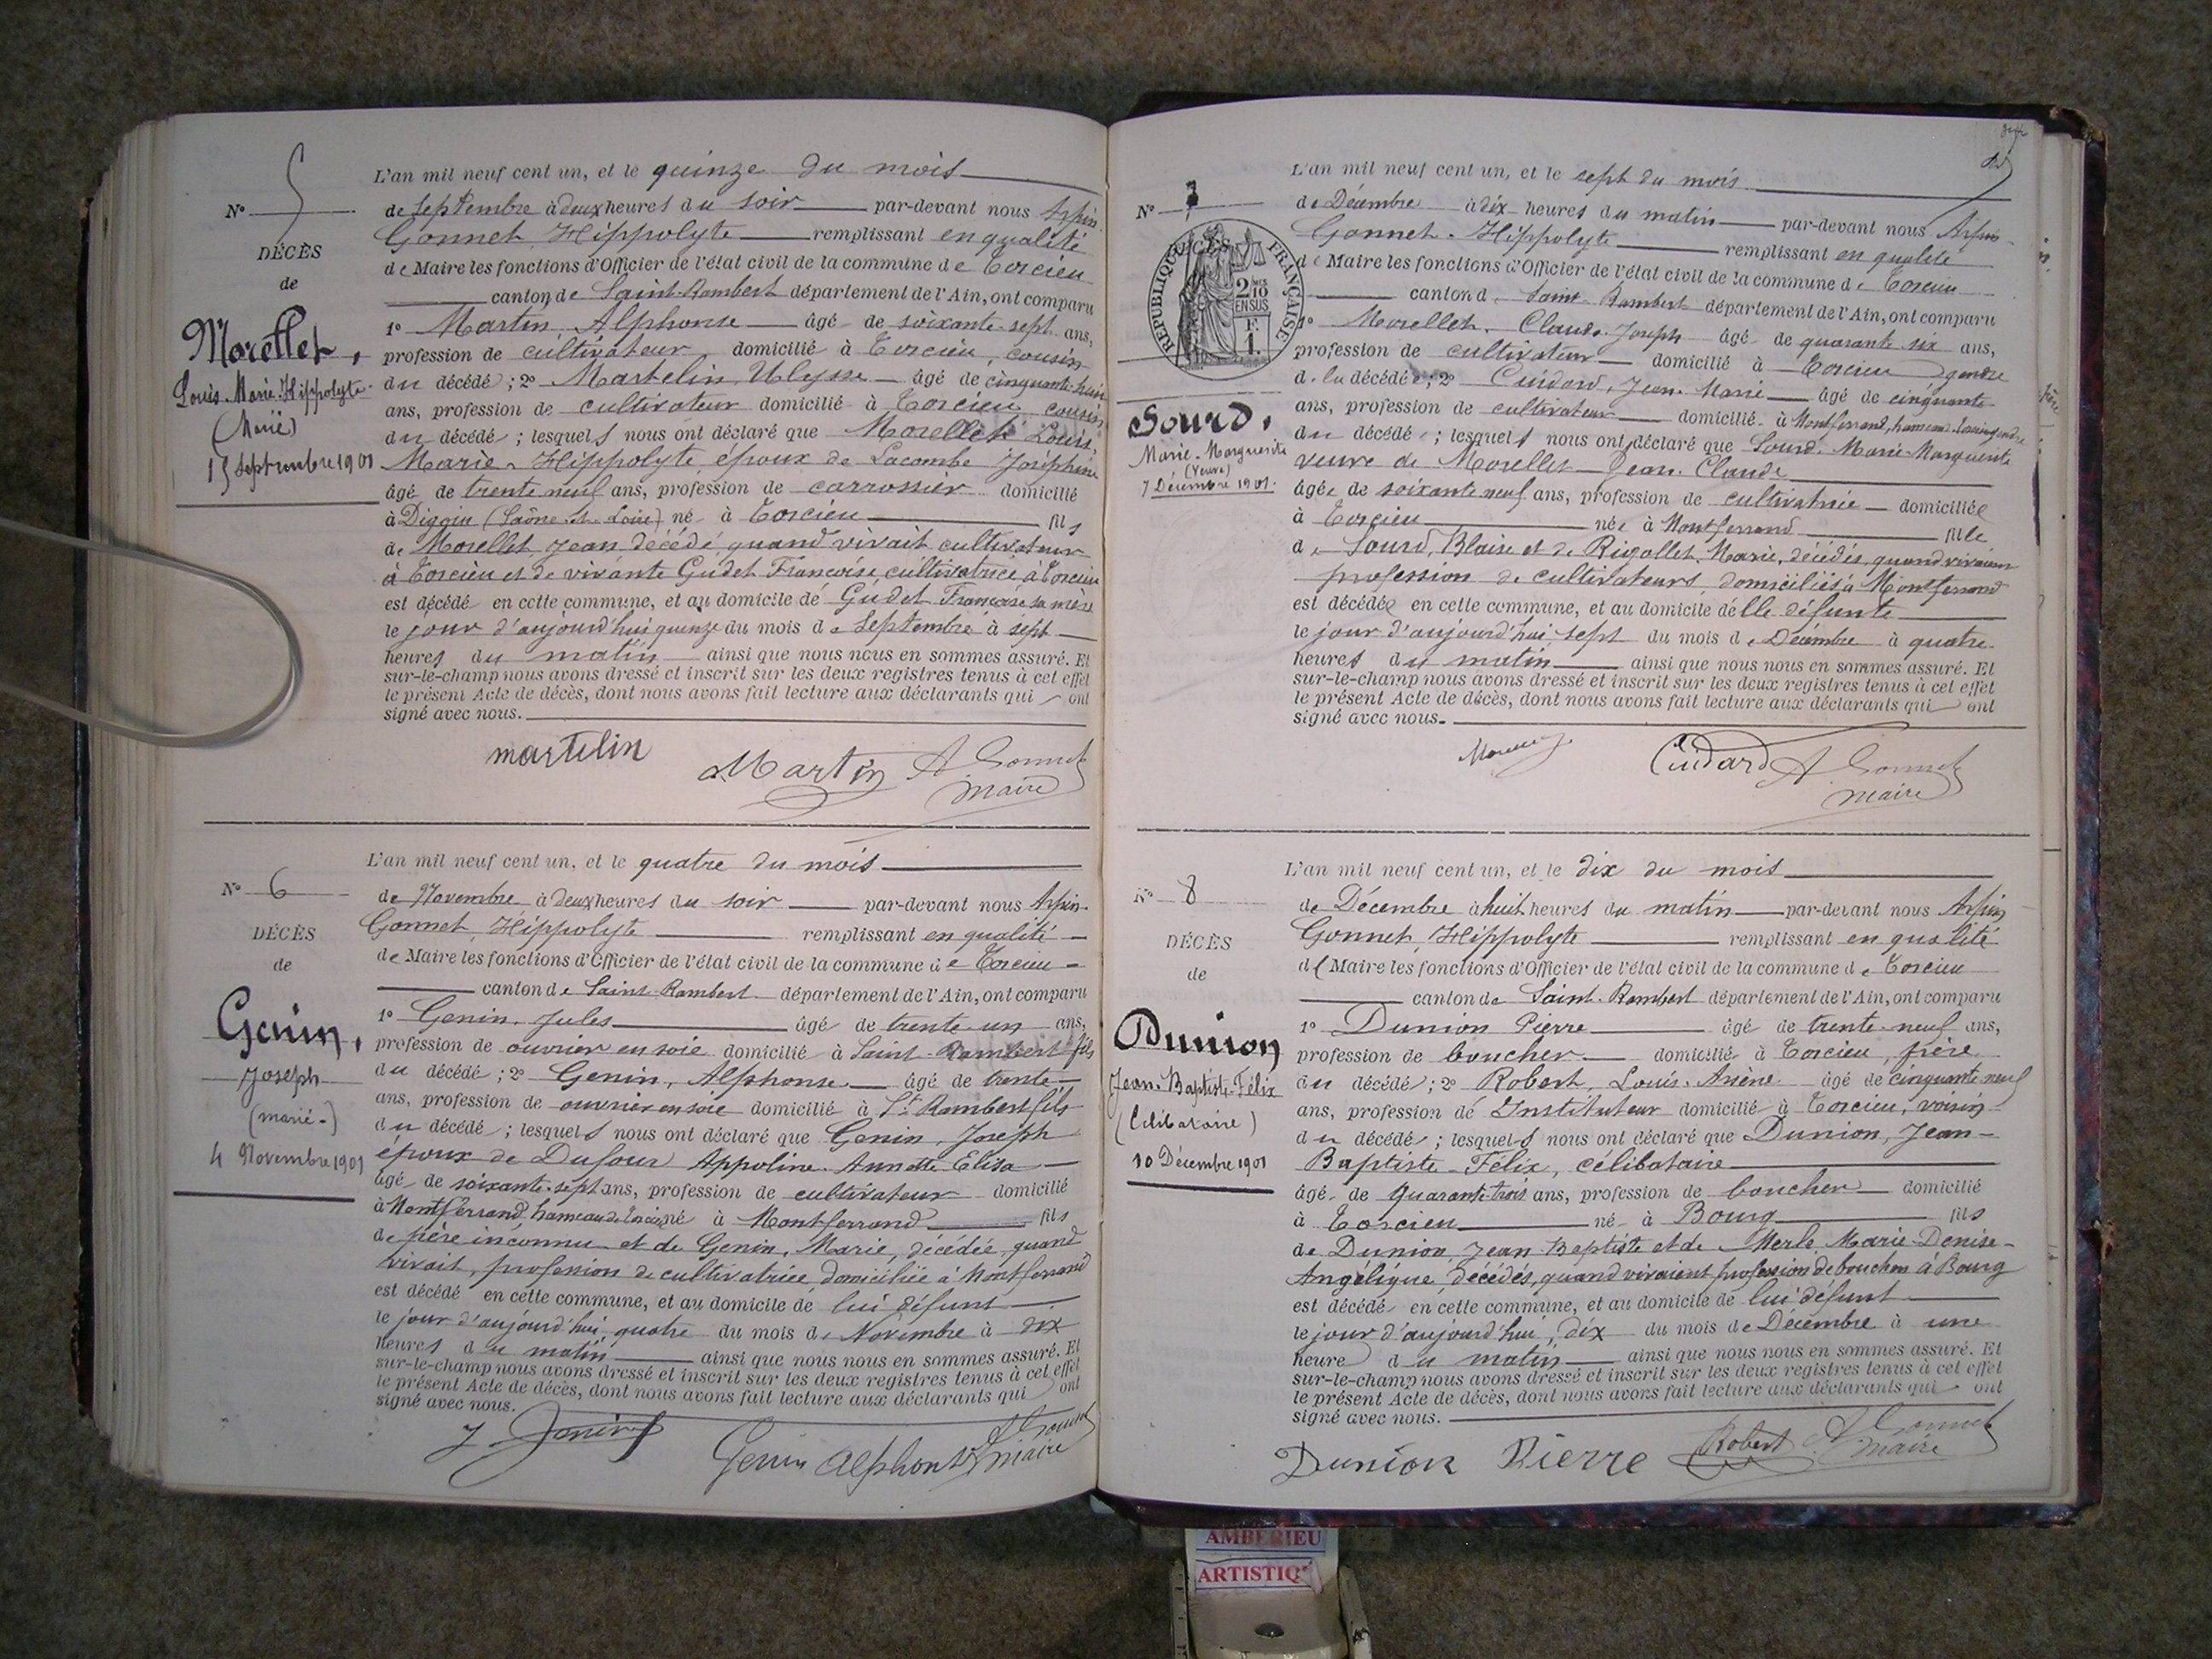 N° 5
DÉCÈS
de
Morellet,
Louis-Marie-Hippolyte
(Marié)
15 Septembre 1901
L'an mil neuf cent un, et le quinze du mois
de Septembre à deux heures du soir par-devant nous Arpin-
Gonnet, Hippolyte remplissant en qualité
de Maire les fonctions d'Officier de l'état civil de la commune de Torcieu
canton de Saint-Rambert département de l'Ain, ont comparu
1° Martin, Alphonse âgé de soixante-sept ans,
profession de cultivateur domicilié à Torcieu, cousin
du décédé ; 2° Martelin, Ulysse âgé de cinquante-huit
ans, profession de cultivateur domicilié à Torcieu, cousin
du décédé ; lesquels nous ont déclaré que Morellet Louis
Marie-Hippolyte, époux de Lacombe Joséphine
âgé de trente neuf ans, profession de carrossier domicilié
à Digoin (Saône-et-Loire) né à Torcieu fils
de Morellet, Jean, décédé, quand vivait cultivateur
à Torcieu et de vivante Gudet Françoise, cultivatrice, à Torcieu
est décédé en cette commune, et au domicile de Gudet Françoise sa mère
le jour d'aujourd'hui quinze du mois de Septembre à sept
heures du matin ainsi que nous nous en sommes assuré. Et
sur-le-champ nous avons dressé et inscrit sur les deux registres tenus à cet effet
le présent Acte de décès, dont nous avons fait lecture aux déclarants qui ont
signé avec nous.
martelin Martin A Gonnet
maire
N° 6
DÉCÈS
de
Genin,
Joseph
(marié-)
4 Novembre 1901
L'an mil neuf cent un, et le quatre du mois
de Novembre à deux heures du soir par-devant nous Arpin-
Gonnet, Hippolyte remplissant en qualité
de Maire les fonctions d'Officier de l'état civil de la commune de Torcieu
canton de Saint-Rambert département de l'Ain, ont comparu
1° Genin, Jules âgé de trente-un ans,
profession de ouvrier en soie domicilié à Saint-Rambert fils
du décédé ; 2° Genin, Alphonse âgé de trente
ans, profession de ouvrier en soie domicilié à St Rambert fils
du décédé ; lesquels nous ont déclaré que Genin, Joseph
époux de Dufour Appoline-Annette-Elisa
âgé de soixante-sept ans, profession de cultivateur domicilié
à Montferrand hameau de Torcieu né à Montferrand fils
de père inconnu et de Genin, Marie, décédée, quand
vivait, profession de cultivatrice, domiciliée à Montferrand
est décédé en cette commune, et au domicile de lui défunt
le jour d'aujourd'hui, quatre du mois de Novembre à dix
heures du matin ainsi que nous nous en sommes assuré. Et
sur-le-champ nous avons dressé et inscrit sur les deux registres tenus à cet effet
le présent Acte de décès, dont nous avons fait lecture aux déclarants qui ont
signé avec nous.
J Genin Genin Alphonse A Gonnet
maire
N° 7
DÉCÈS
RÉPUBLIQUE FRANÇAISE
2/10 EN SUS
1 F.
Sourd,
Marie-Marguerite
(Veuve)
7 Décembre 1901.
L'an mil neuf cent un, et le sept du mois
de Décembre à dix heures du matin par-devant nous Arpin-
Gonnet, Hippolyte remplissant en qualité
de Maire les fonctions d'Officier de l'état civil de la commune de Torcieu
canton de Saint-Rambert département de l'Ain, ont comparu
1° Morellet, Claude-Joseph âgé de quarante six ans,
profession de cultivateur domicilié à Torcieu gendre
de la décédée ; 2° Cuidard, Jean-Marie âgé de cinquante
ans, profession de cultivateur domicilié à Montferrand, hameau
du décédé ; lesquels nous ont déclaré que Sourd, Marie-Marguerite
veuve de Morellet Jean-Claude
âgée de soixante neuf ans, profession de cultivatrice domiciliée
à Torcieu née à Montferrand fille
de Sourd, Blaise et de Rigollet, Marie, décédés, quand vivaient
profession de cultivateurs, domiciliés à Montferrand
est décédée en cette commune, et au domicile d'elle défunte
le jour d'aujourd'hui sept du mois de Décembre à quatre
heures du matin ainsi que nous nous en sommes assuré. Et
sur-le-champ nous avons dressé et inscrit sur les deux registres tenus à cet effet
le présent Acte de décès, dont nous avons fait lecture aux déclarants qui ont
signé avec nous.
Cuidard A Gonnet
maire
N° 8
DÉCÈS
de
Dunion
Jean-Baptiste-Félix
(Célibataire)
10 Décembre 1901
L'an mil neuf cent un, et le dix du mois
de Décembre à huit heures du matin par-devant nous Arpin
Gonnet, Hippolyte remplissant en qualité
de Maire les fonctions d'Officier de l'état civil de la commune de Torcieu
canton de Saint-Rambert département de l'Ain, ont comparu
1° Dunion Pierre âgé de trente-neuf ans,
profession de boucher domicilié à Torcieu, frère
du décédé ; 2° Robert, Louis-Arsène âgé de cinquante neuf
ans, profession de Instituteur domicilié à Torcieu, voisin
du décédé ; lesquels nous ont déclaré que Dunion, Jean-
Baptiste-Félix, célibataire
âgé de Quarante-trois ans, profession de boucher domicilié
à Torcieu né à Bourg fils
de Dunion, Jean-Baptiste et de Merle, Marie-Denise-
Angélique, décédés, quand vivaient profession de bouchers à Bourg
est décédé en cette commune, et au domicile de lui défunt
le jour d'aujourd'hui, dix du mois de Décembre à une
heure du matin ainsi que nous nous en sommes assuré. Et
sur-le-champ nous avons dressé et inscrit sur les deux registres tenus à cet effet
le présent Acte de décès, dont nous avons fait lecture aux déclarants qui ont
signé avec nous.
Dunion Pierre Robert A Gonnet
maire
AMBERIEU
ARTISTIQ